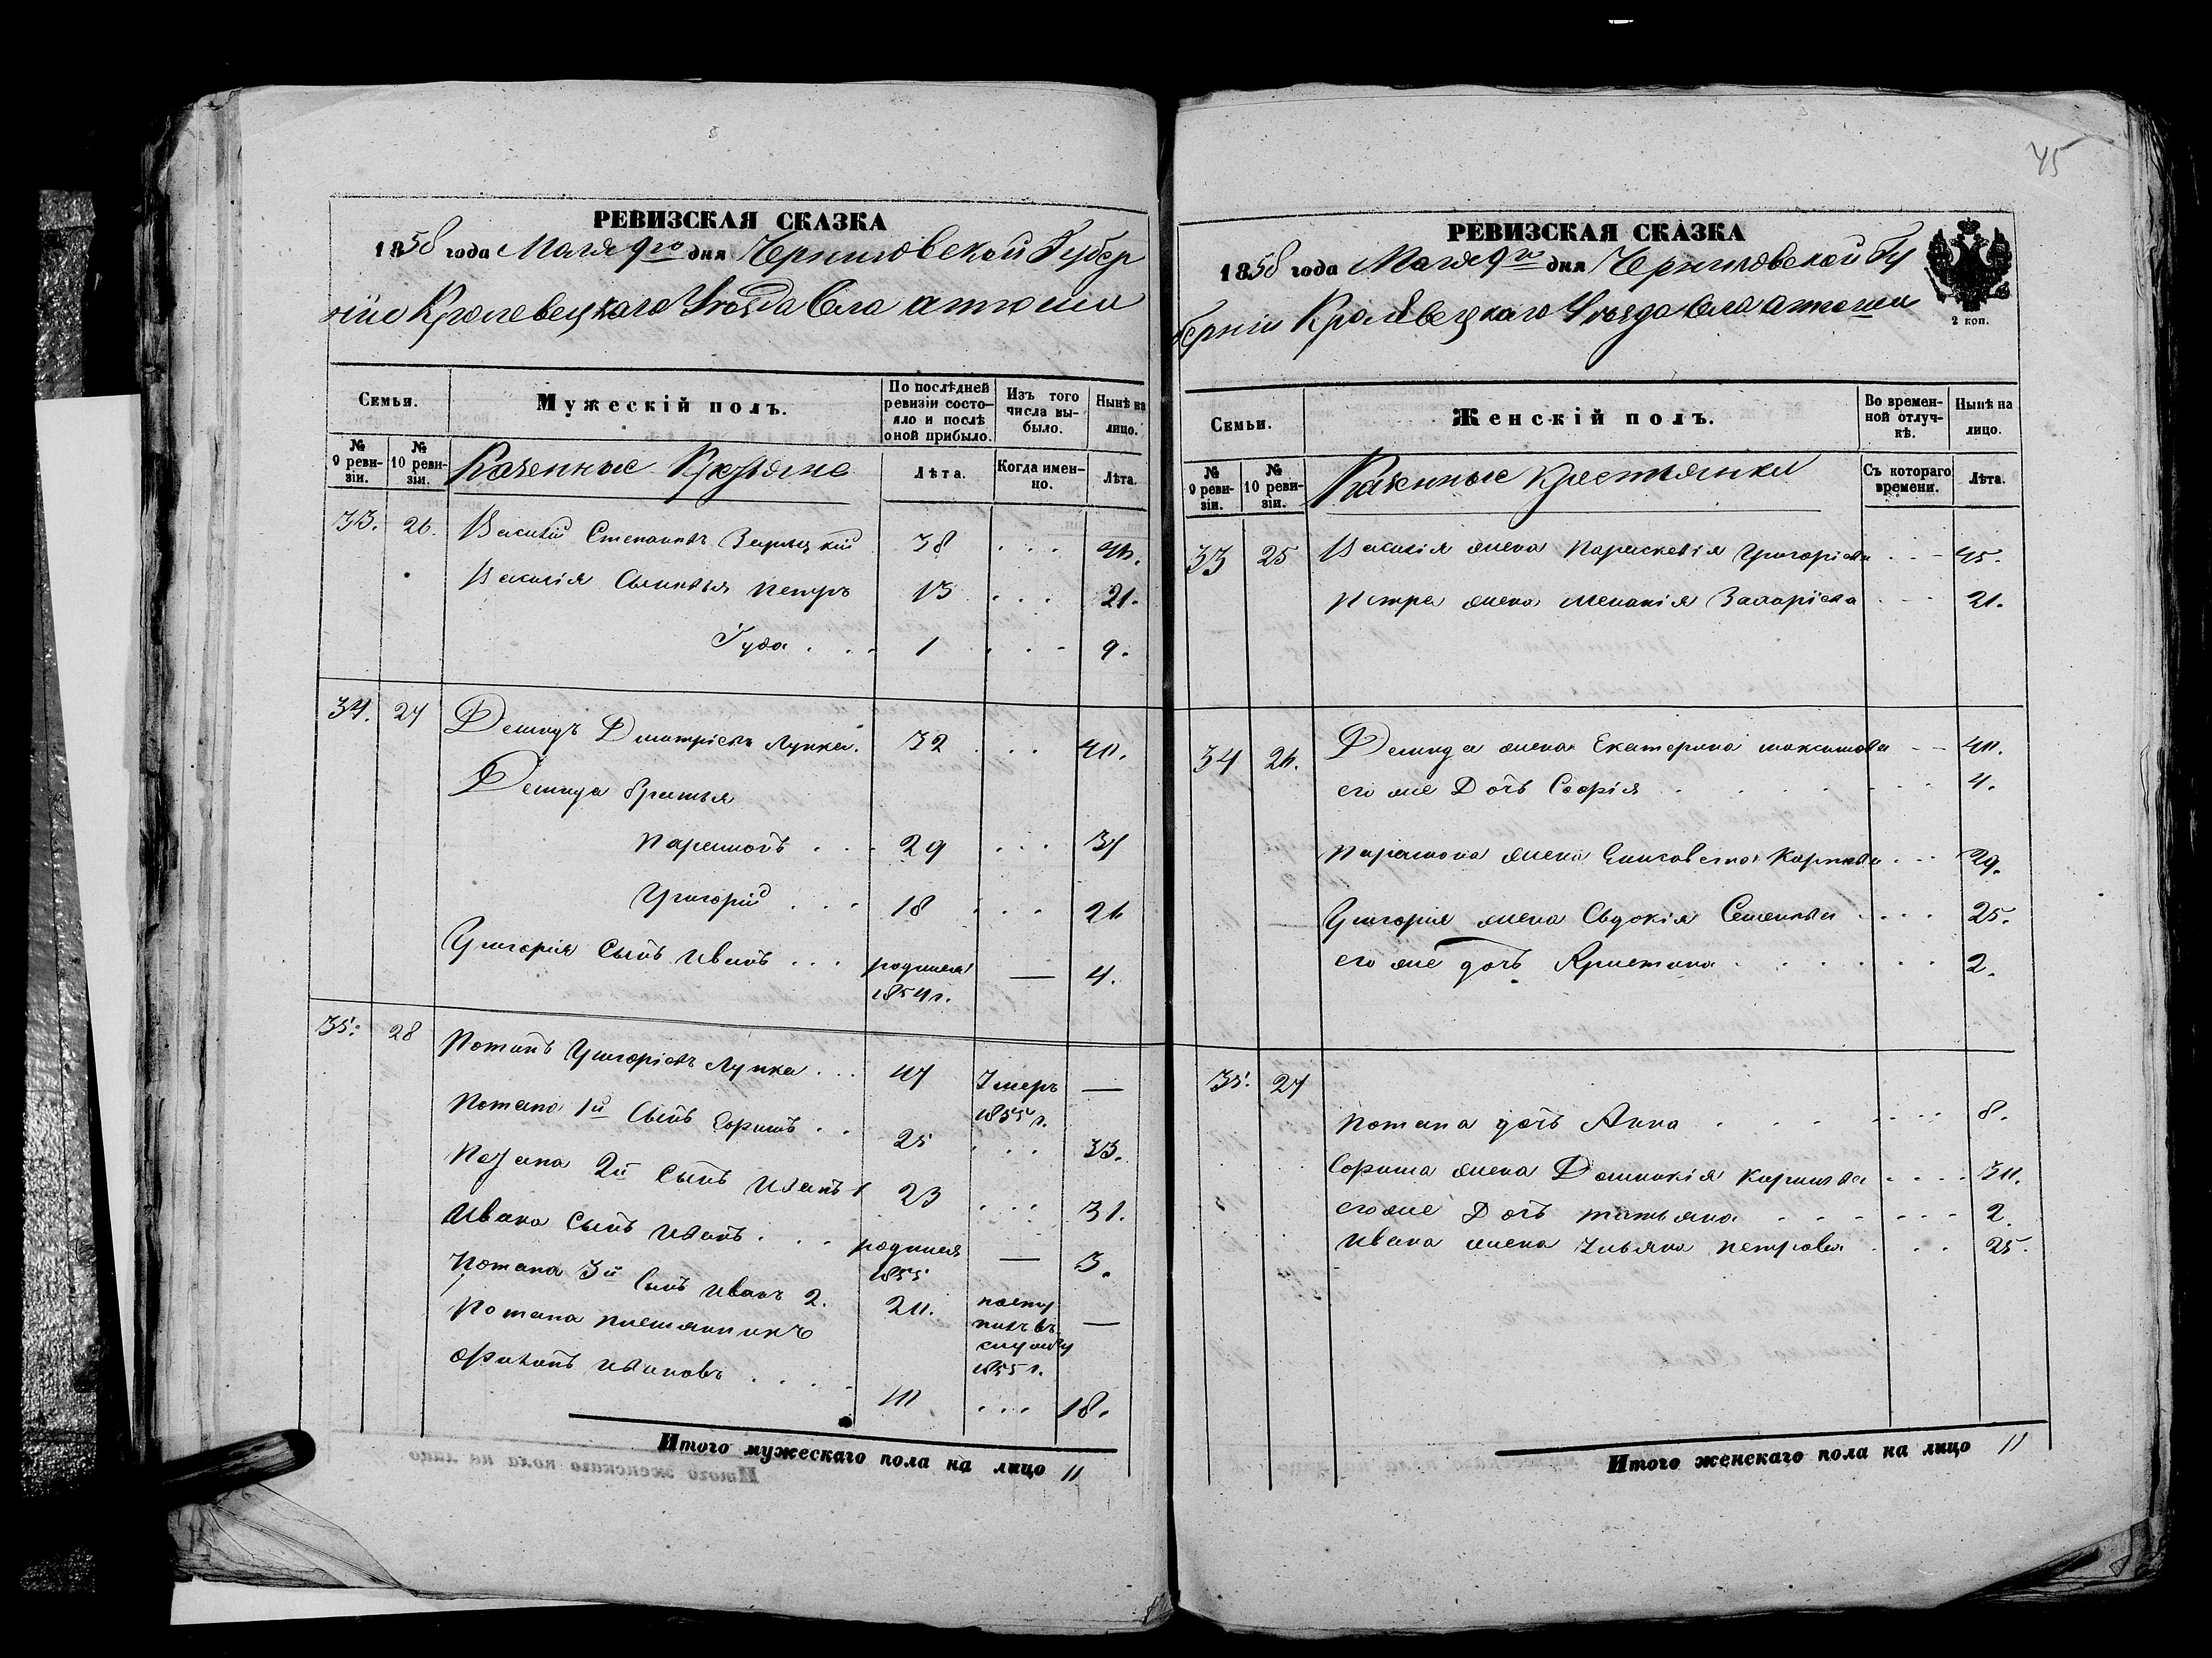 РЕВИЗСКАЯ СКАЗКА
1858 года Маия 9го дня Черниговской Губер
ніи Кролевецкаго Уѣзда Села Атюши
Семьи.
Мужескій полъ.
По послѣдней ревизіи состояло и послѣ оной прибыло.
Изъ того числа выбыло.
Нынѣ на лицо.
№ 9 ревизіи.
№ 10 ревизіи.
Казенные
Лѣта.
Когда именно.
Лѣта.
33. 26. Василій Степановъ 38 . . . 46.
Василія Сыновья Петръ 13 . . . 21.
Іуда . . . 1 . . . 9.
34. 27 Демидъ Дмитріевъ Лупка. 32 . . . 40.
Демида братья
Парамонъ . . . 29 . . . 37
Григорій . . . 18 . . . 26
Григорія Сынъ Иванъ . . . родился 1854 г. — 4.
35. 28 Потапъ Григоріевъ Лупка . . . 47 Умеръ 1855 г. —
Потапа 1й Сынъ Ефимъ . . 25 . . . 33.
Потапа 2й Сынъ Иванъ 1 23 . . . 31.
Ивана Сынъ Иванъ . . . родился 1855 — 3.
Потапа 3й Сынъ Иванъ 2. 20. посту
пилъ въ
службу
1855 г. —
Потапа племянникъ
Ивановъ . . . . 10 . . . 18.
Итого мужескаго пола на лицо 11
45
РЕВИЗСКАЯ СКАЗКА
1858 года Маия 9го дня Черниговской Гу
берніи Кролевецкаго Уѣзда Села Атюши
2 коп.
Семьи.
Женскій полъ.
Во временной отлучкѣ.
Нынѣ на лицо.
№ 9 ревизіи.
№ 10 ревизіи.
Казенные Крестьянки
Съ котораго времени.
Лѣта.
33 25 Василія жена Параскевія Григоріева . . - 45.
Петра жена Меланія Захаріева . - - 21.
34 26. Демида жена Екатерина Максимова - - 40.
его же Дочь Софія . . . . . . 4.
Парамона жена Елисавета Карпова . . . 29.
Григорія жена Евдокія Семенова . . . 25.
его же дочь Христина . . . . . . 2.
35. 27
Потапа дочь Анна . . . . . . 8.
Ефима жена Домникія . . . . 30.
его же Дочь Татьяна . . . . . . 2.
Ивана жена Ульяна Петрова . . . 25.
Итого женскаго пола на лицо 11